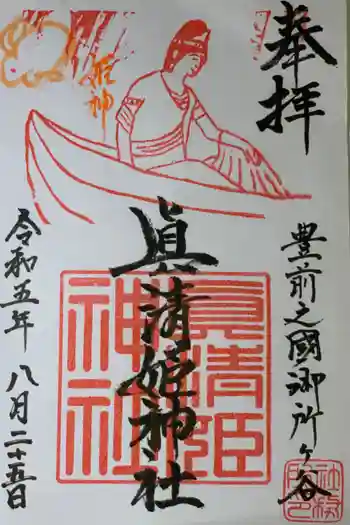 奉拝
豊前之國御所ヶ谷
眞清姫神社
眞清姫
神社
姫神
令和五年八月二十五日